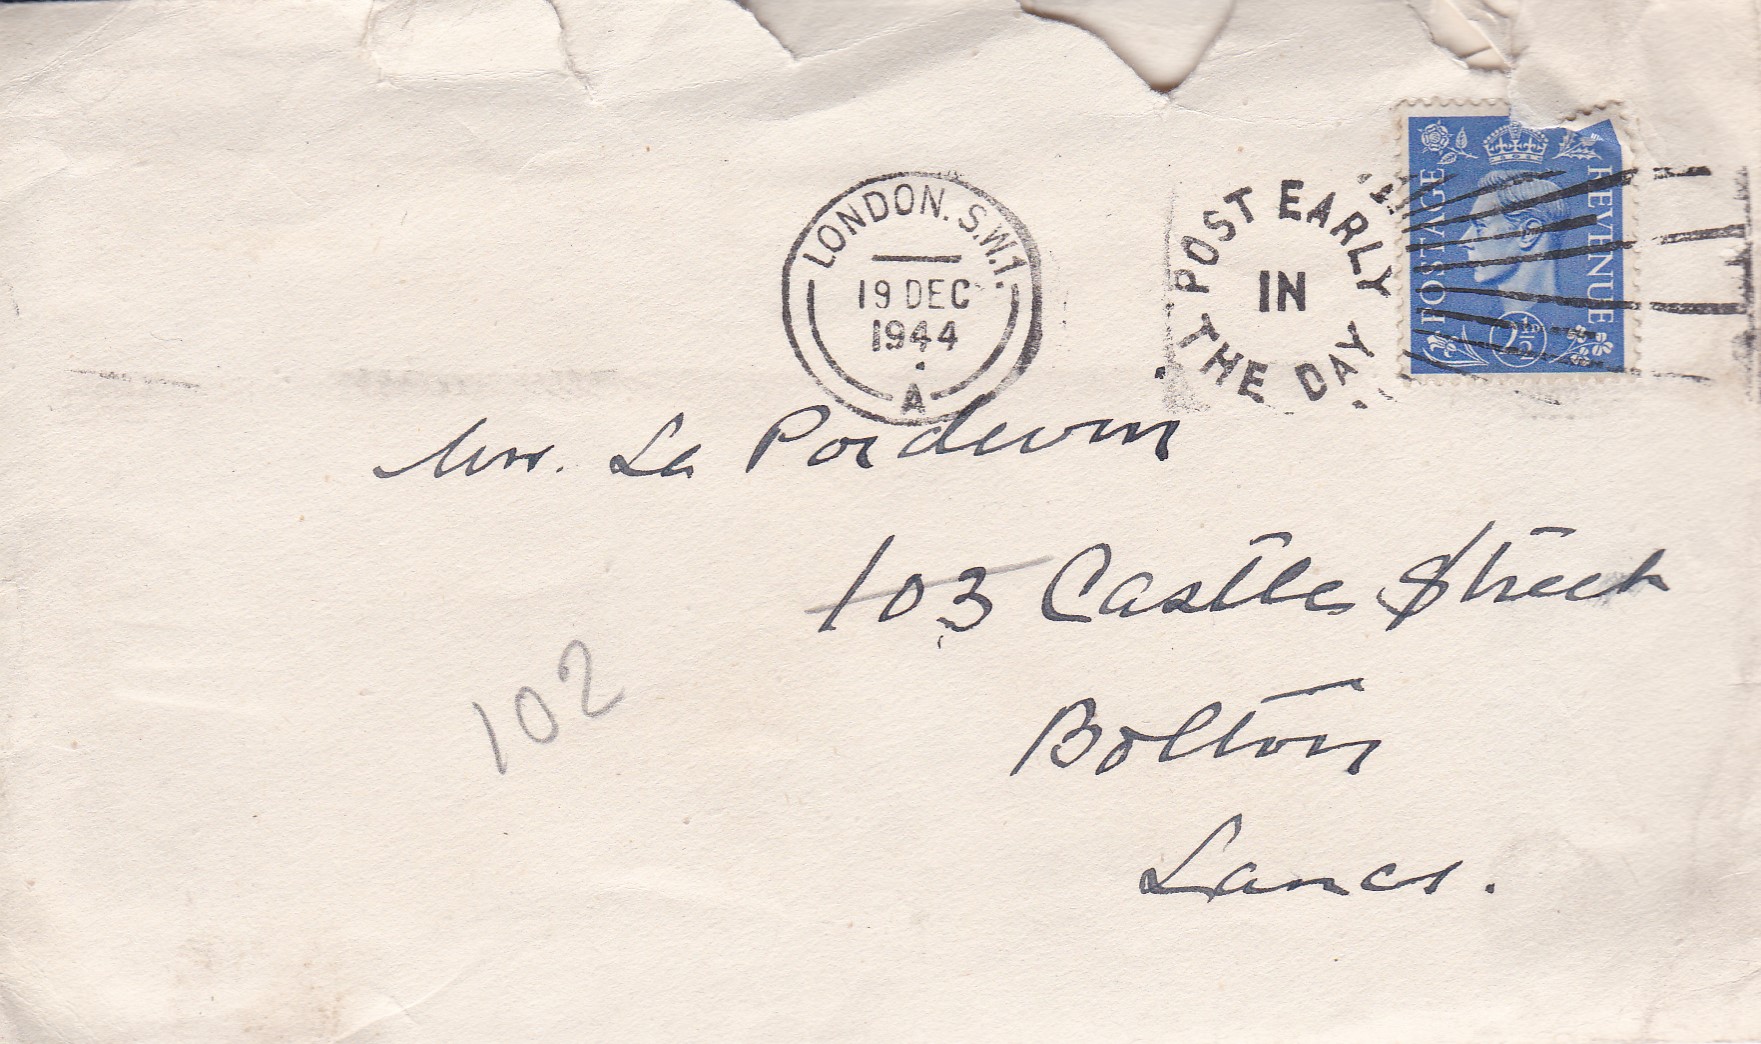 LONDON. S.W.1.
19 DEC
1944
A
POST EARLY
IN
THE DAY
POSTAGE
REVENUE
2½D
Mrs. Le Poidevin
103 Castle Street
102
Bolton
Lancs.